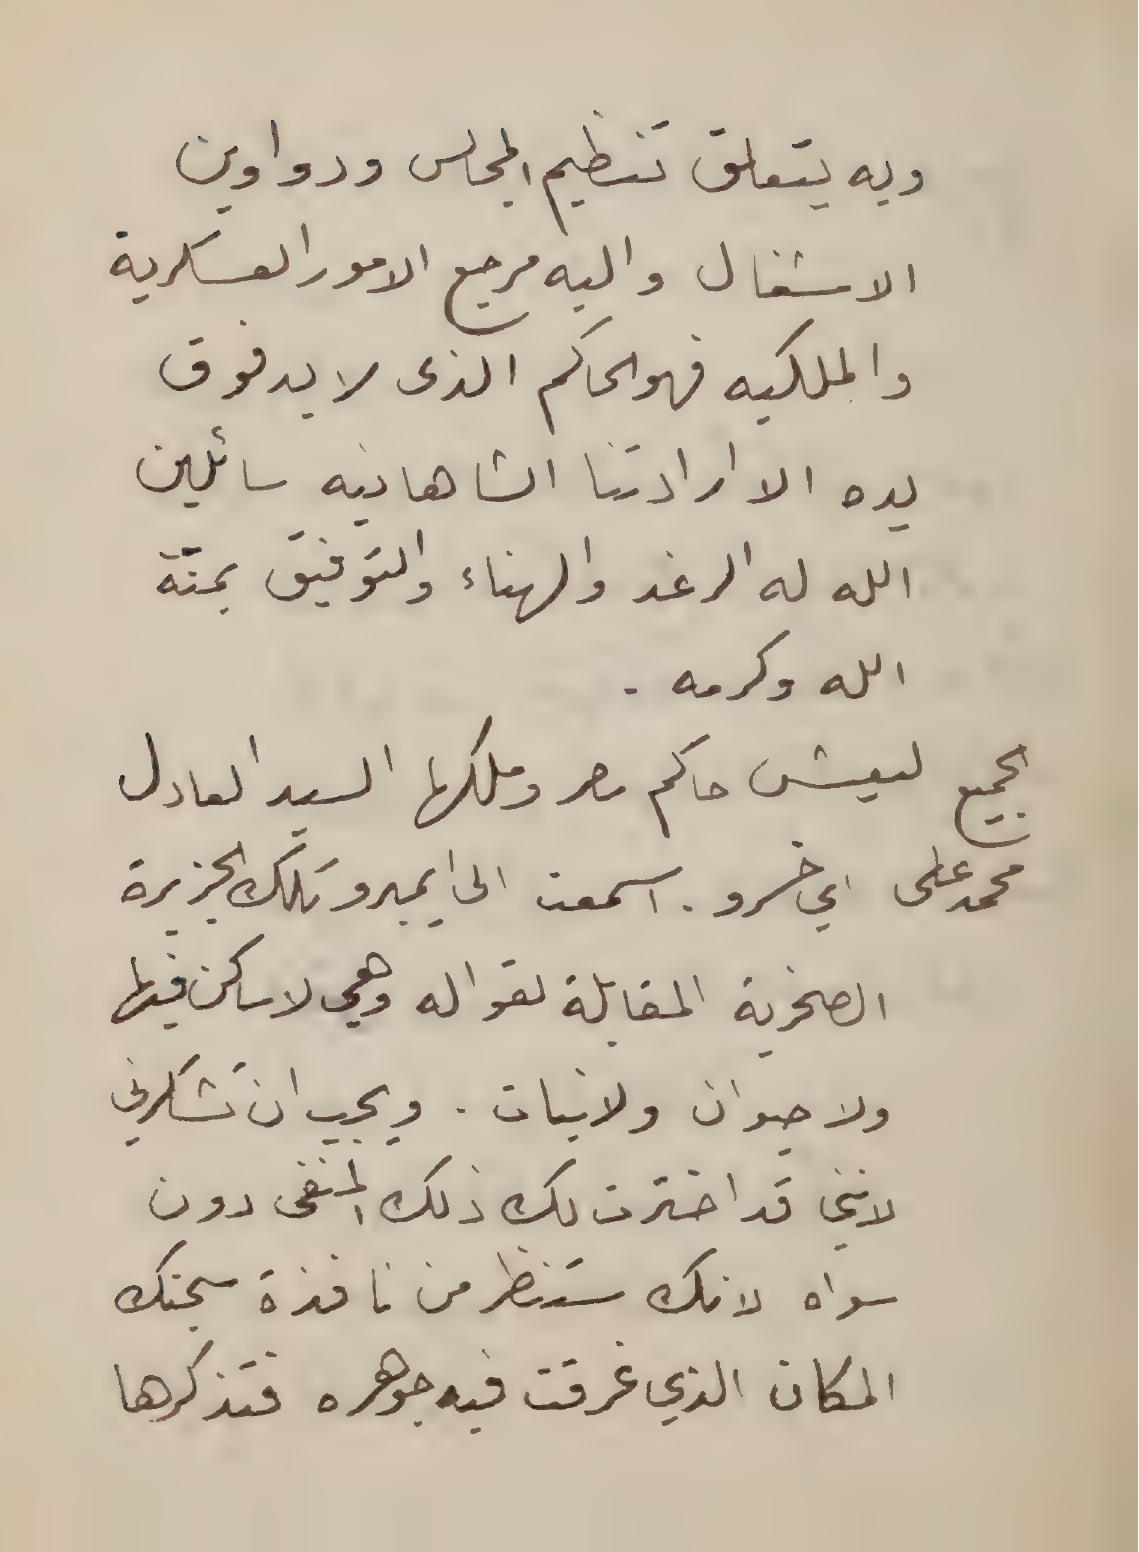 وبه يتعلق تنظيم المجالس ودواوين
الاشغال واليه مرجع الامور العسكرية
والملكيه فهو الحاكم الذى لا يد فوق
يده الا ارادتنا الشاهانيه سائلين
الله له الرغد والهناء والتوفيق بمنّة
الله وكرمه .
الجميع ليعيش حاكم مصر وملكها السيد العادل
محمد على اي خسرو . اسمعت الى ايمبرو تلك الجزيرة
الصخرية المقابلة لقواله وهي لا ساكن فيها
ولا حيوان ولا نبات . ويجب ان تشكرنى
لانني قد اخترت لك ذلك المنفى دون
سواه لانك ستنظر من نافذة سجنك
المكان الذي غرقت فيه جوهره فتذكرها